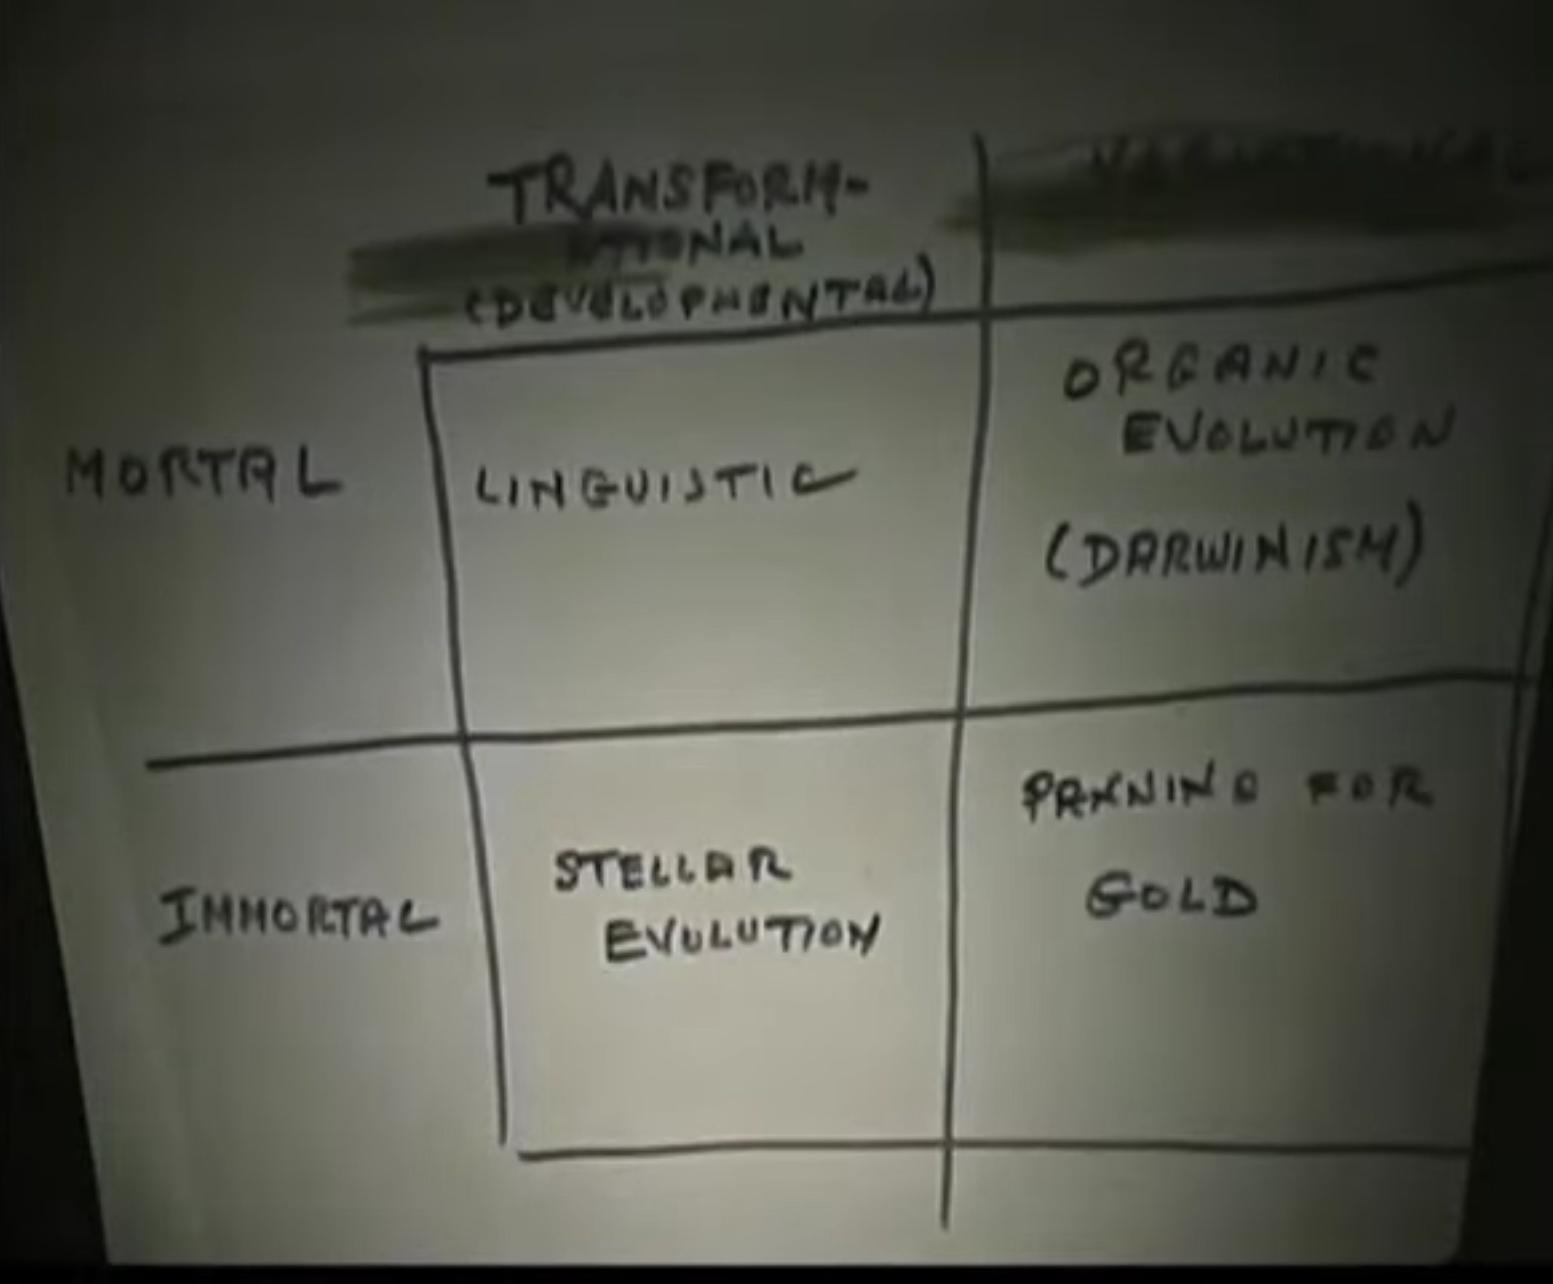 TRANSFORM-
ATIONAL
(DEVELOPMENTAL)
VARIATIONAL
MORTAL
LINGUISTIC
ORGANIC
EVOLUTION
(DARWINISM)
IMMORTAL
STELLAR
EVOLUTION
PANNING FOR
GOLD